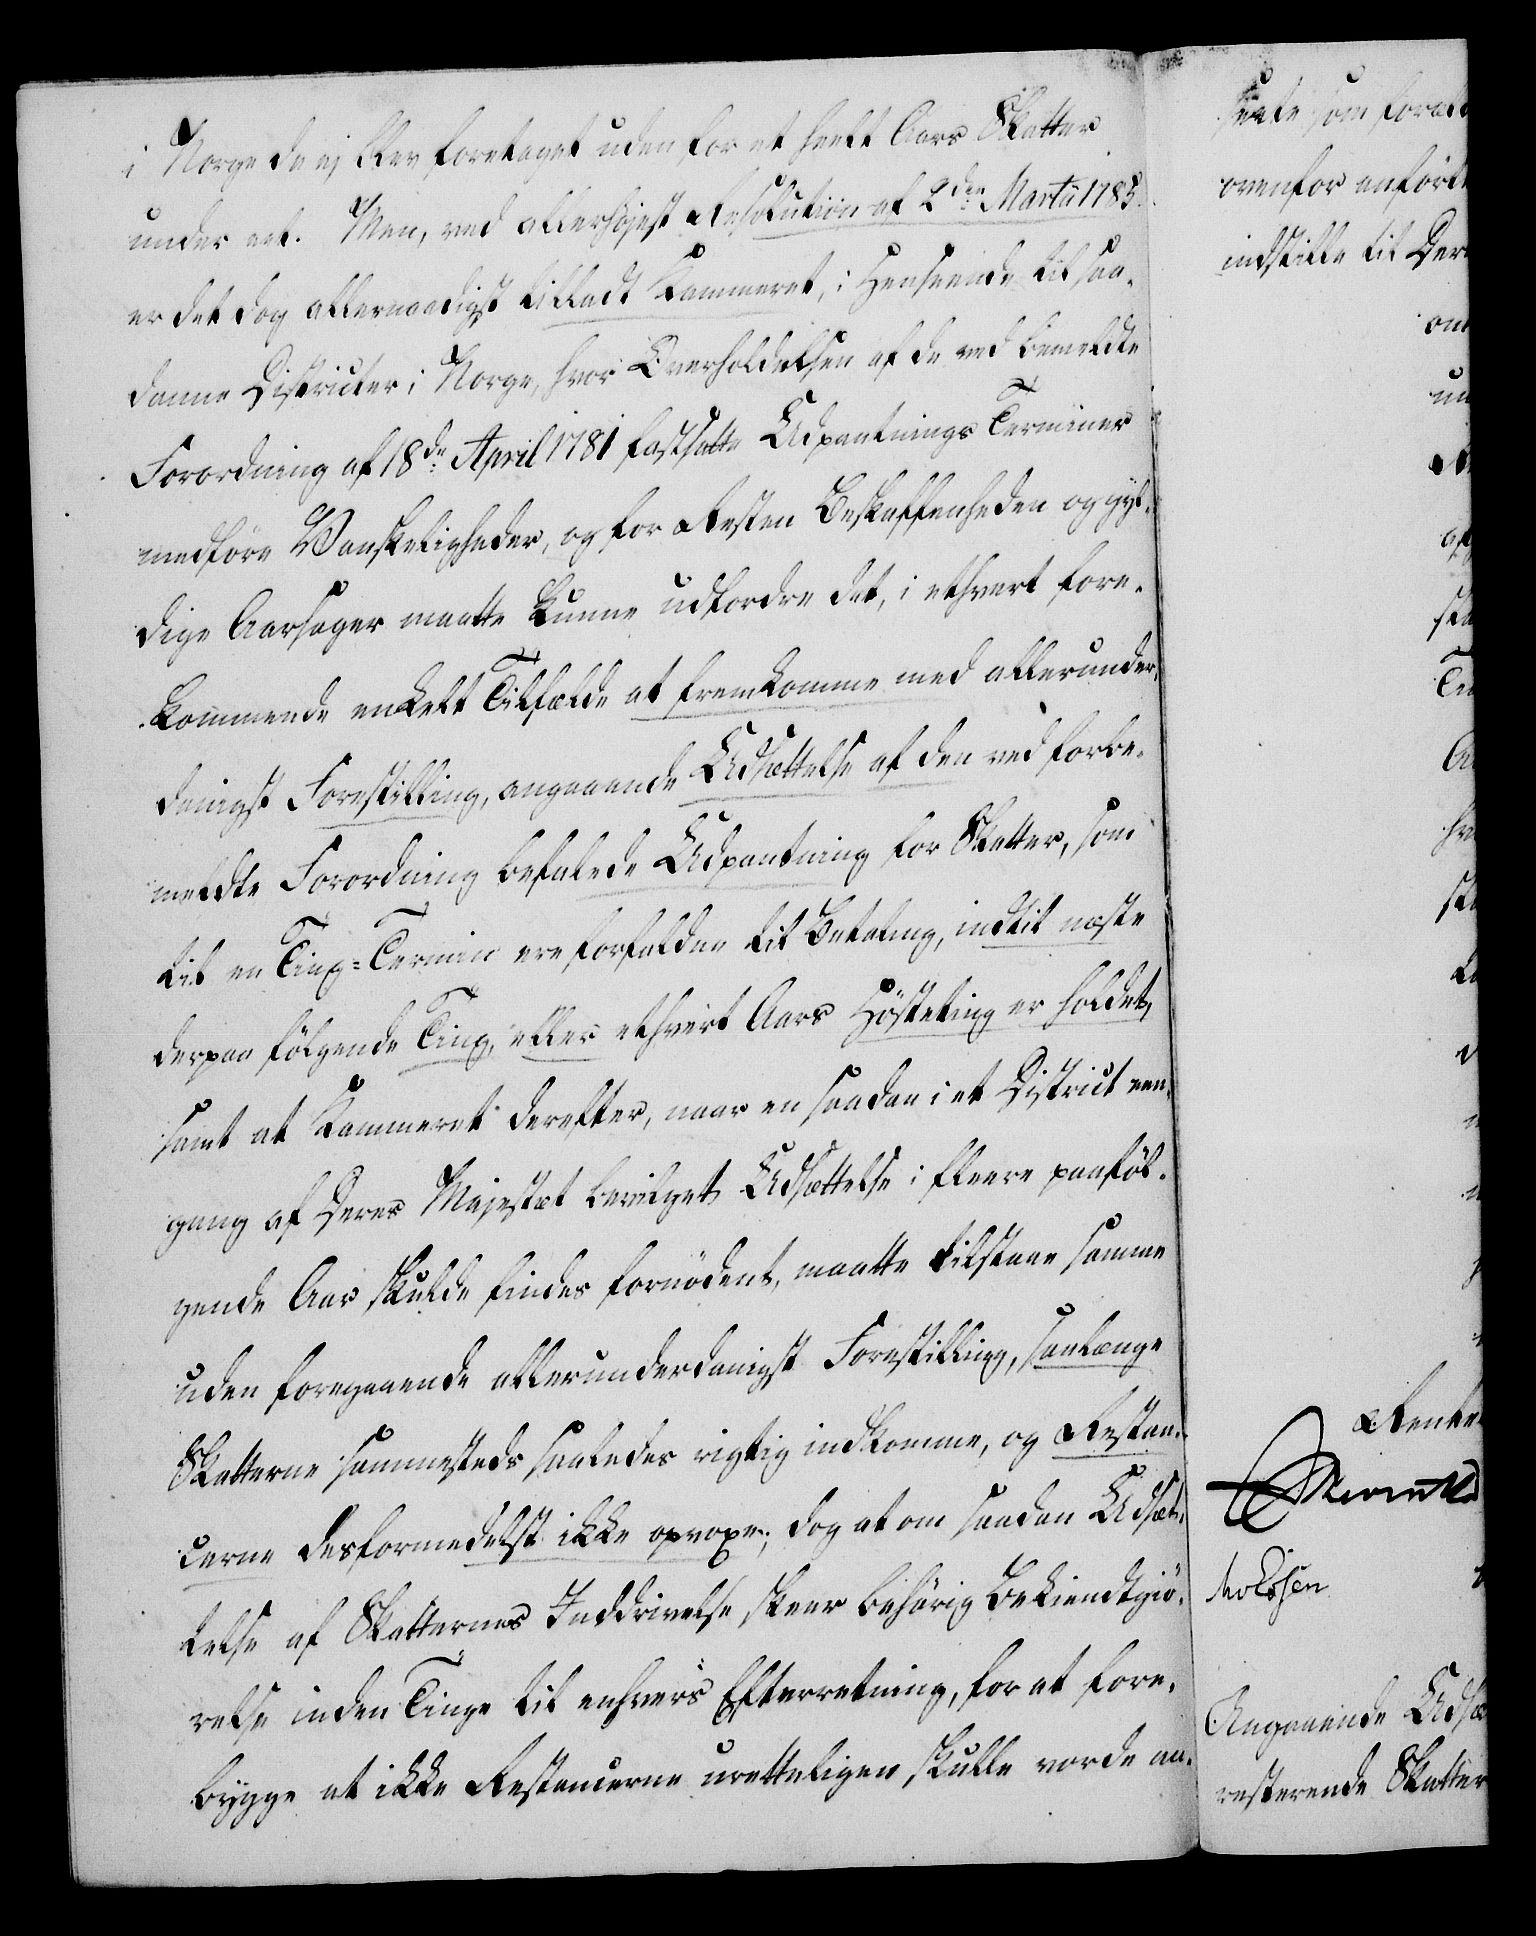 i Norge da ej blev foretaget uden for et heelt Aars Skatter
under eet. Men, ved allerhøjest Resolution af 2den Martii 1785.
er det dog allernaadigst tilladt Kammeret, i Henseende til saa-
danne Districter i Norge, hvor Overholdelsen af de ved bemeldte
Forordning af 18de April 1781 fastsatte Udpantnings Terminer
medføre Vanskeligheder, og for Resten Beskaffenheden og gyl-
dige Aarsager maatte kunne udfordre det, i ethvert fore-
kommende enkelt Tilfælde at fremkomme med allerunder-
danigst Forestilling, angaaende Udsættelse af den ved forbe-
meldte Forordning befalede Udpantning for Skatter, som
til en Ting-Termin ere forfaldne til Betaling, indtil næste
derpaa følgende Ting, eller ethvert Aars Høsteting er holdet,
samt at Kammeret derefter, naar en saadan i et District een-
gang af Deres Majestæt bevilget Udsættelse i fleere paaføl-
gende Aar skulde findes fornødent, maatte tilstaae samme
uden foregaaende allerunderdanigst Forestilling, saalænge
Skatterne sammesteds saaledes rigtig indkomme, og Restan-
cerne desformedelst ikke opvoxe; dog at om saadan Udsæt-
telse af Skatternes Inddrivelse skeer behørig Bekiendtgiø-
relse inden Tinge til enhvers Efterretning, for at fore-
bygge at ikke Restancerne uretteligen skulle vorde an-
ovenfor anførte
indstille til Der
om
Rente
Angaaende Udsæ
resterende Skatter